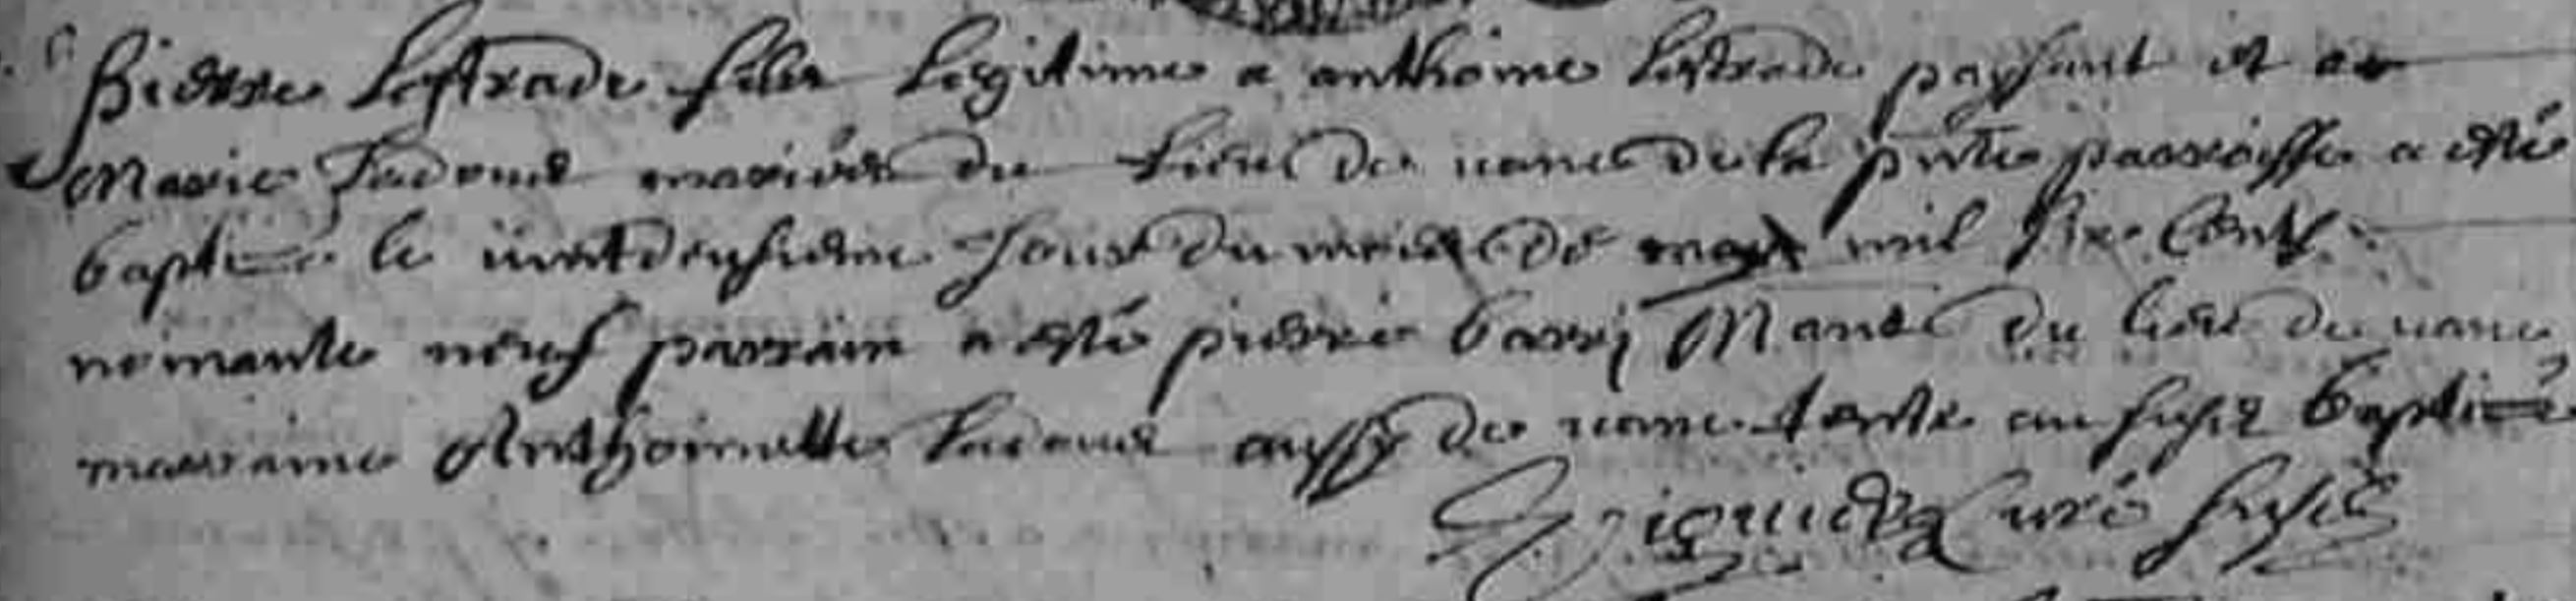 Pierre Lestrade filz legitime a anthoine lestrade paysant et a
Marie Ladoue mariés du lieu de nane de la pnte parroisse a esté
baptizé le vintdeusieme Jour du mois de may mil six cents
nonante neuf parrain a esté pierre barri du lieu de nane
marraine Anthoinette Ladoue aussy de nane baptizé
curé